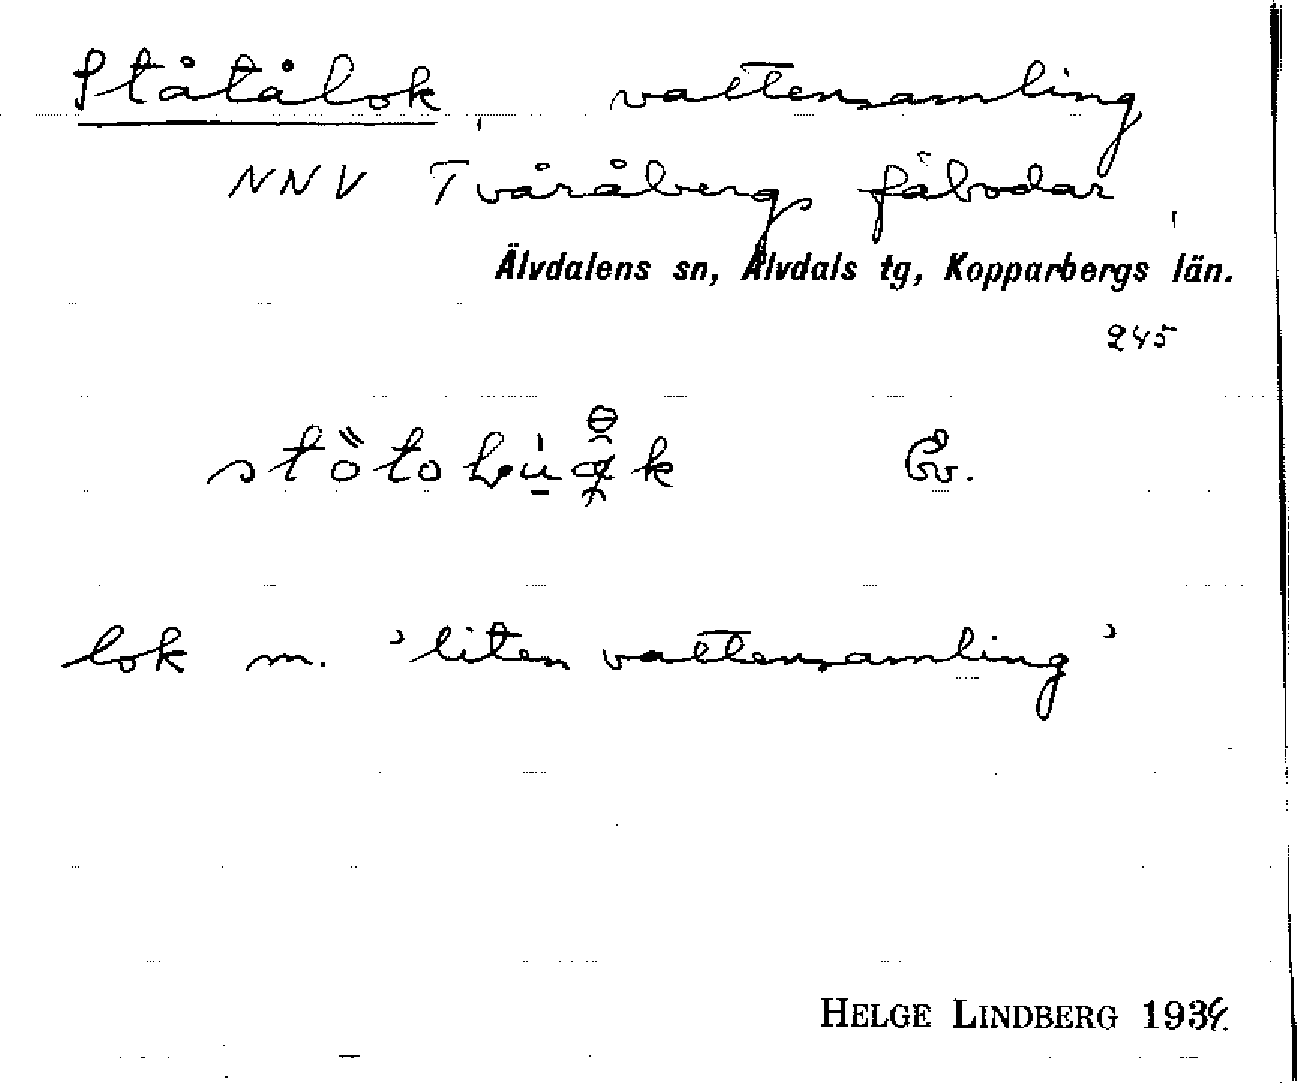 Ståtålok, vattensamling
NNV Tvåråbergs fäbodar,
Älvdalens sn, Älvdals tg, Kopparbergs län.
245
lok m. 'liten vattensamling'
HELGE LINDBERG 193